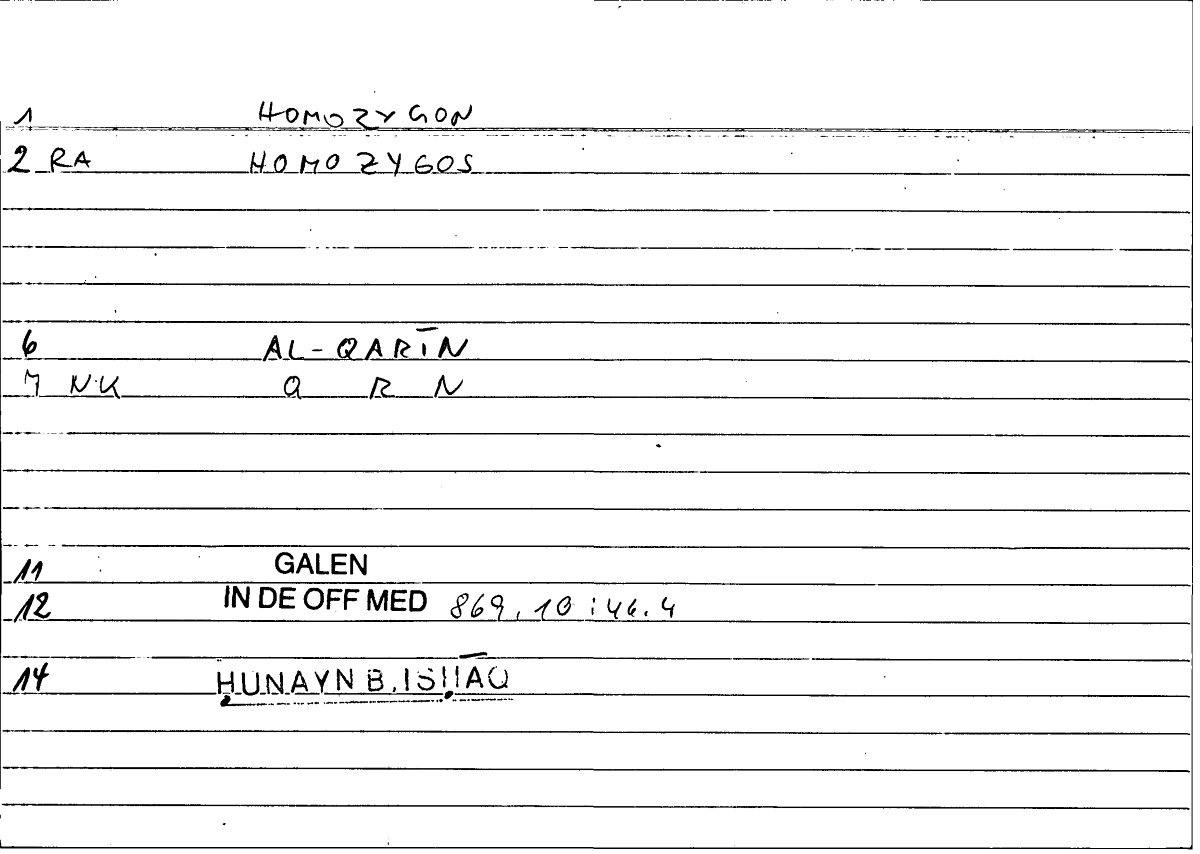 1 HOMOZYGON
2 RA HOMOZYGOS
6 AL-QARĪN
7 NK Q R N
11 GALEN
12 IN DE OFF MED 869,10:46.4
14 ḤUNAYN B. ISḤĀQ